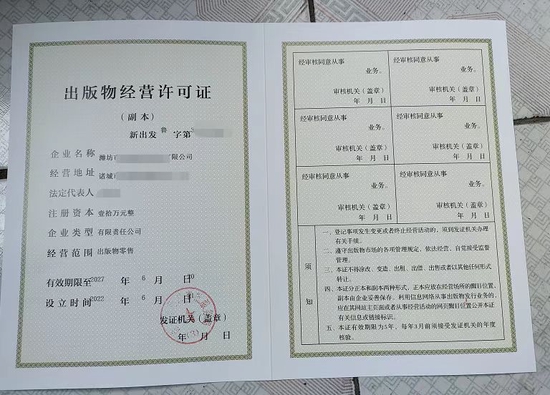 出版物经营许可证
（副本）
新出发 鲁 字第
企业名称 潍坊 有限公司
经营地址 诸城
法定代表人
注册资本 壹拾万元整
企业类型 有限责任公司
经营范围 出版物零售
有效期限至2027 年 6 月 日
设立时间 2022 年 6 月 日
发证机关（盖章）
年 月 日
经审核同意从事
业务。
审核机关（盖章）
年 月 日
经审核同意从事
业务。
审核机关（盖章）
年 月 日
经审核同意从事
业务。
审核机关（盖章）
年 月 日
经审核同意从事
业务。
审核机关（盖章）
年 月 日
经审核同意从事
业务。
审核机关（盖章）
年 月 日
经审核同意从事
业务。
审核机关（盖章）
年 月 日
须知
一、登记事项发生变更或者终止经营活动的，须到发证机关办理
有关手续。
二、遵守出版物市场的各项管理规定，依法经营，自觉接受监督
管理。
三、本证不得涂改、变造、出租、出借、出售或者以其他任何形式
转让。
四、本证分正本和副本两种形式，正本应放在经营场所的醒目位置，
副本由企业妥善保存。利用信息网络从事出版物发行业务的，
应在其网站主页面或者从事经营活动的网页醒目位置公开本证
有关信息或链接标识。
五、本证有效期限为5年，每年3月前须接受发证机关的年度
核验。